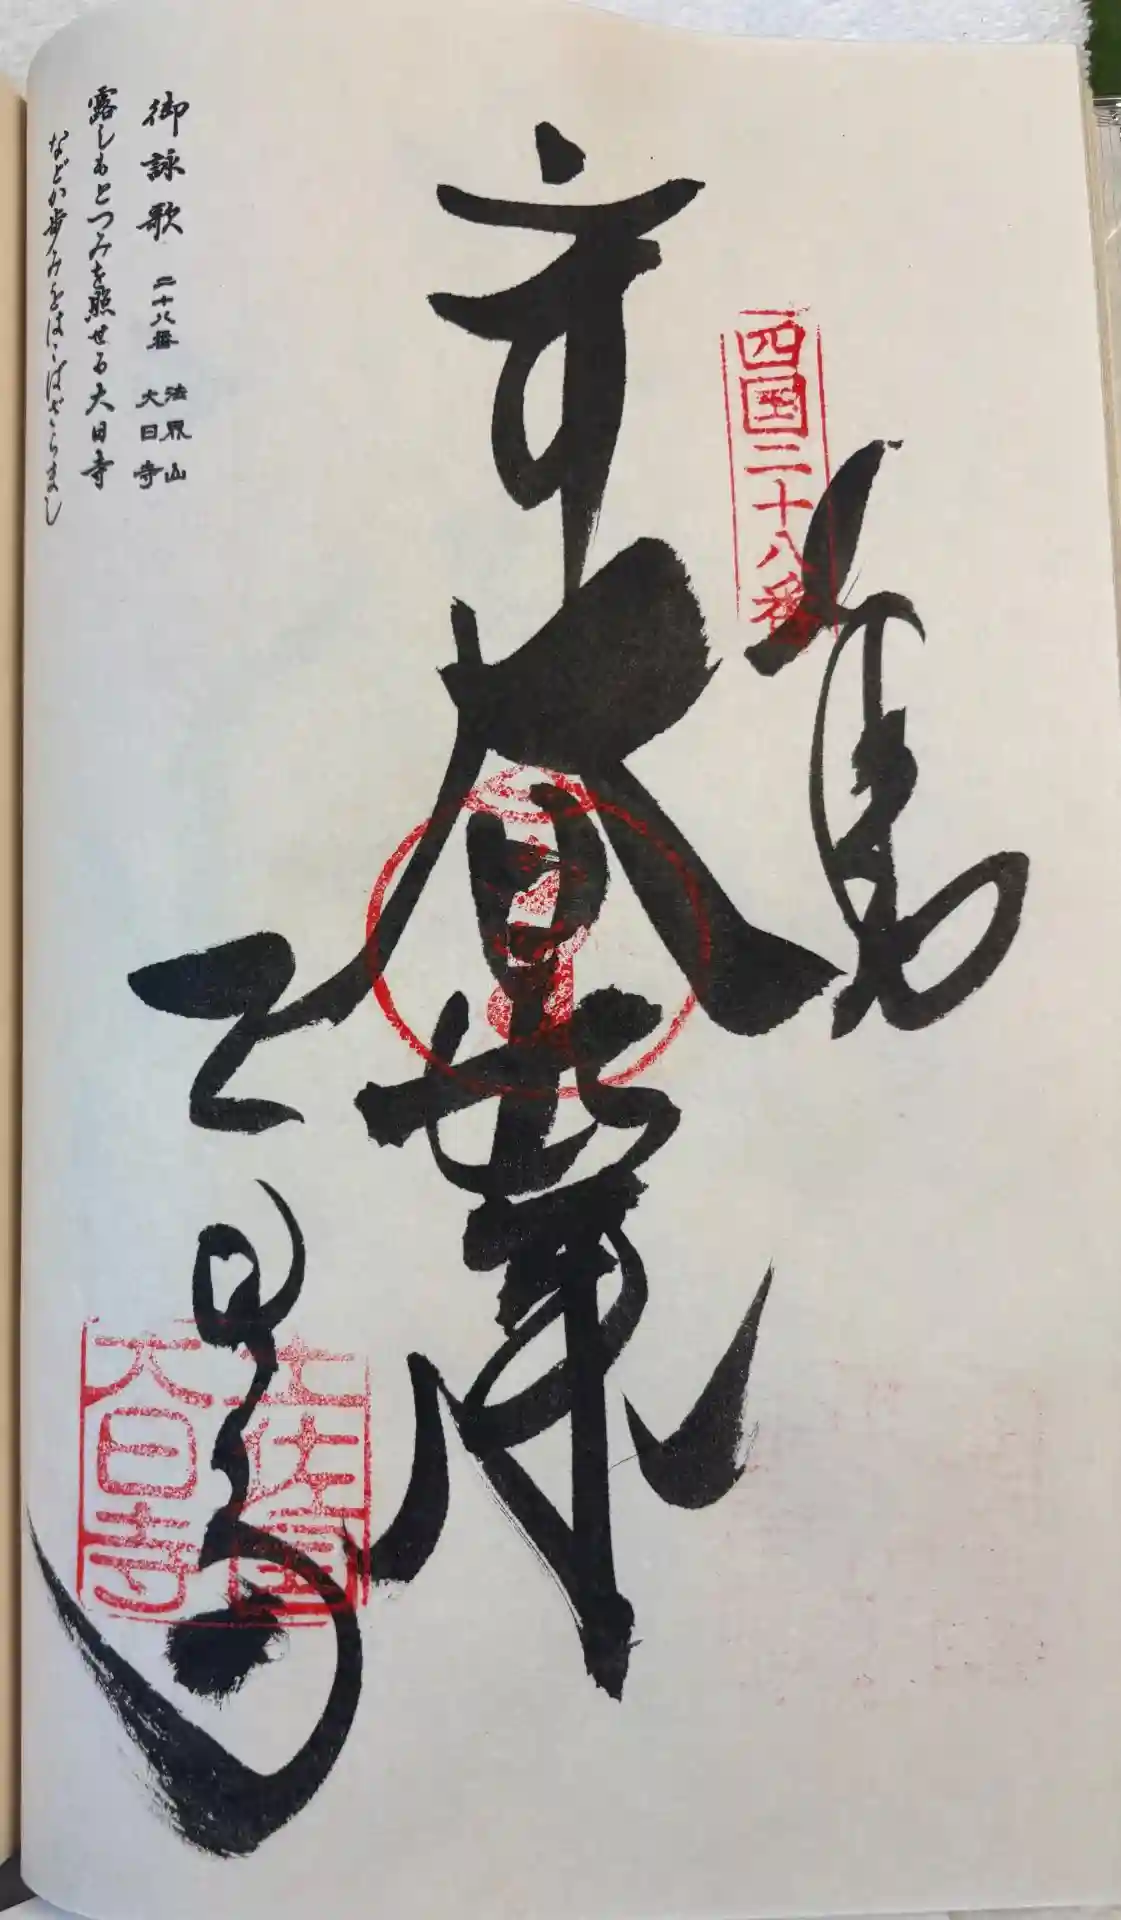 四国二十八番
大日如来
大日寺
土佐国
大日寺
御詠歌 二十八番 法界山 大日寺
露しもとつみを照せる大日寺
などか歩みをはこばざらまし